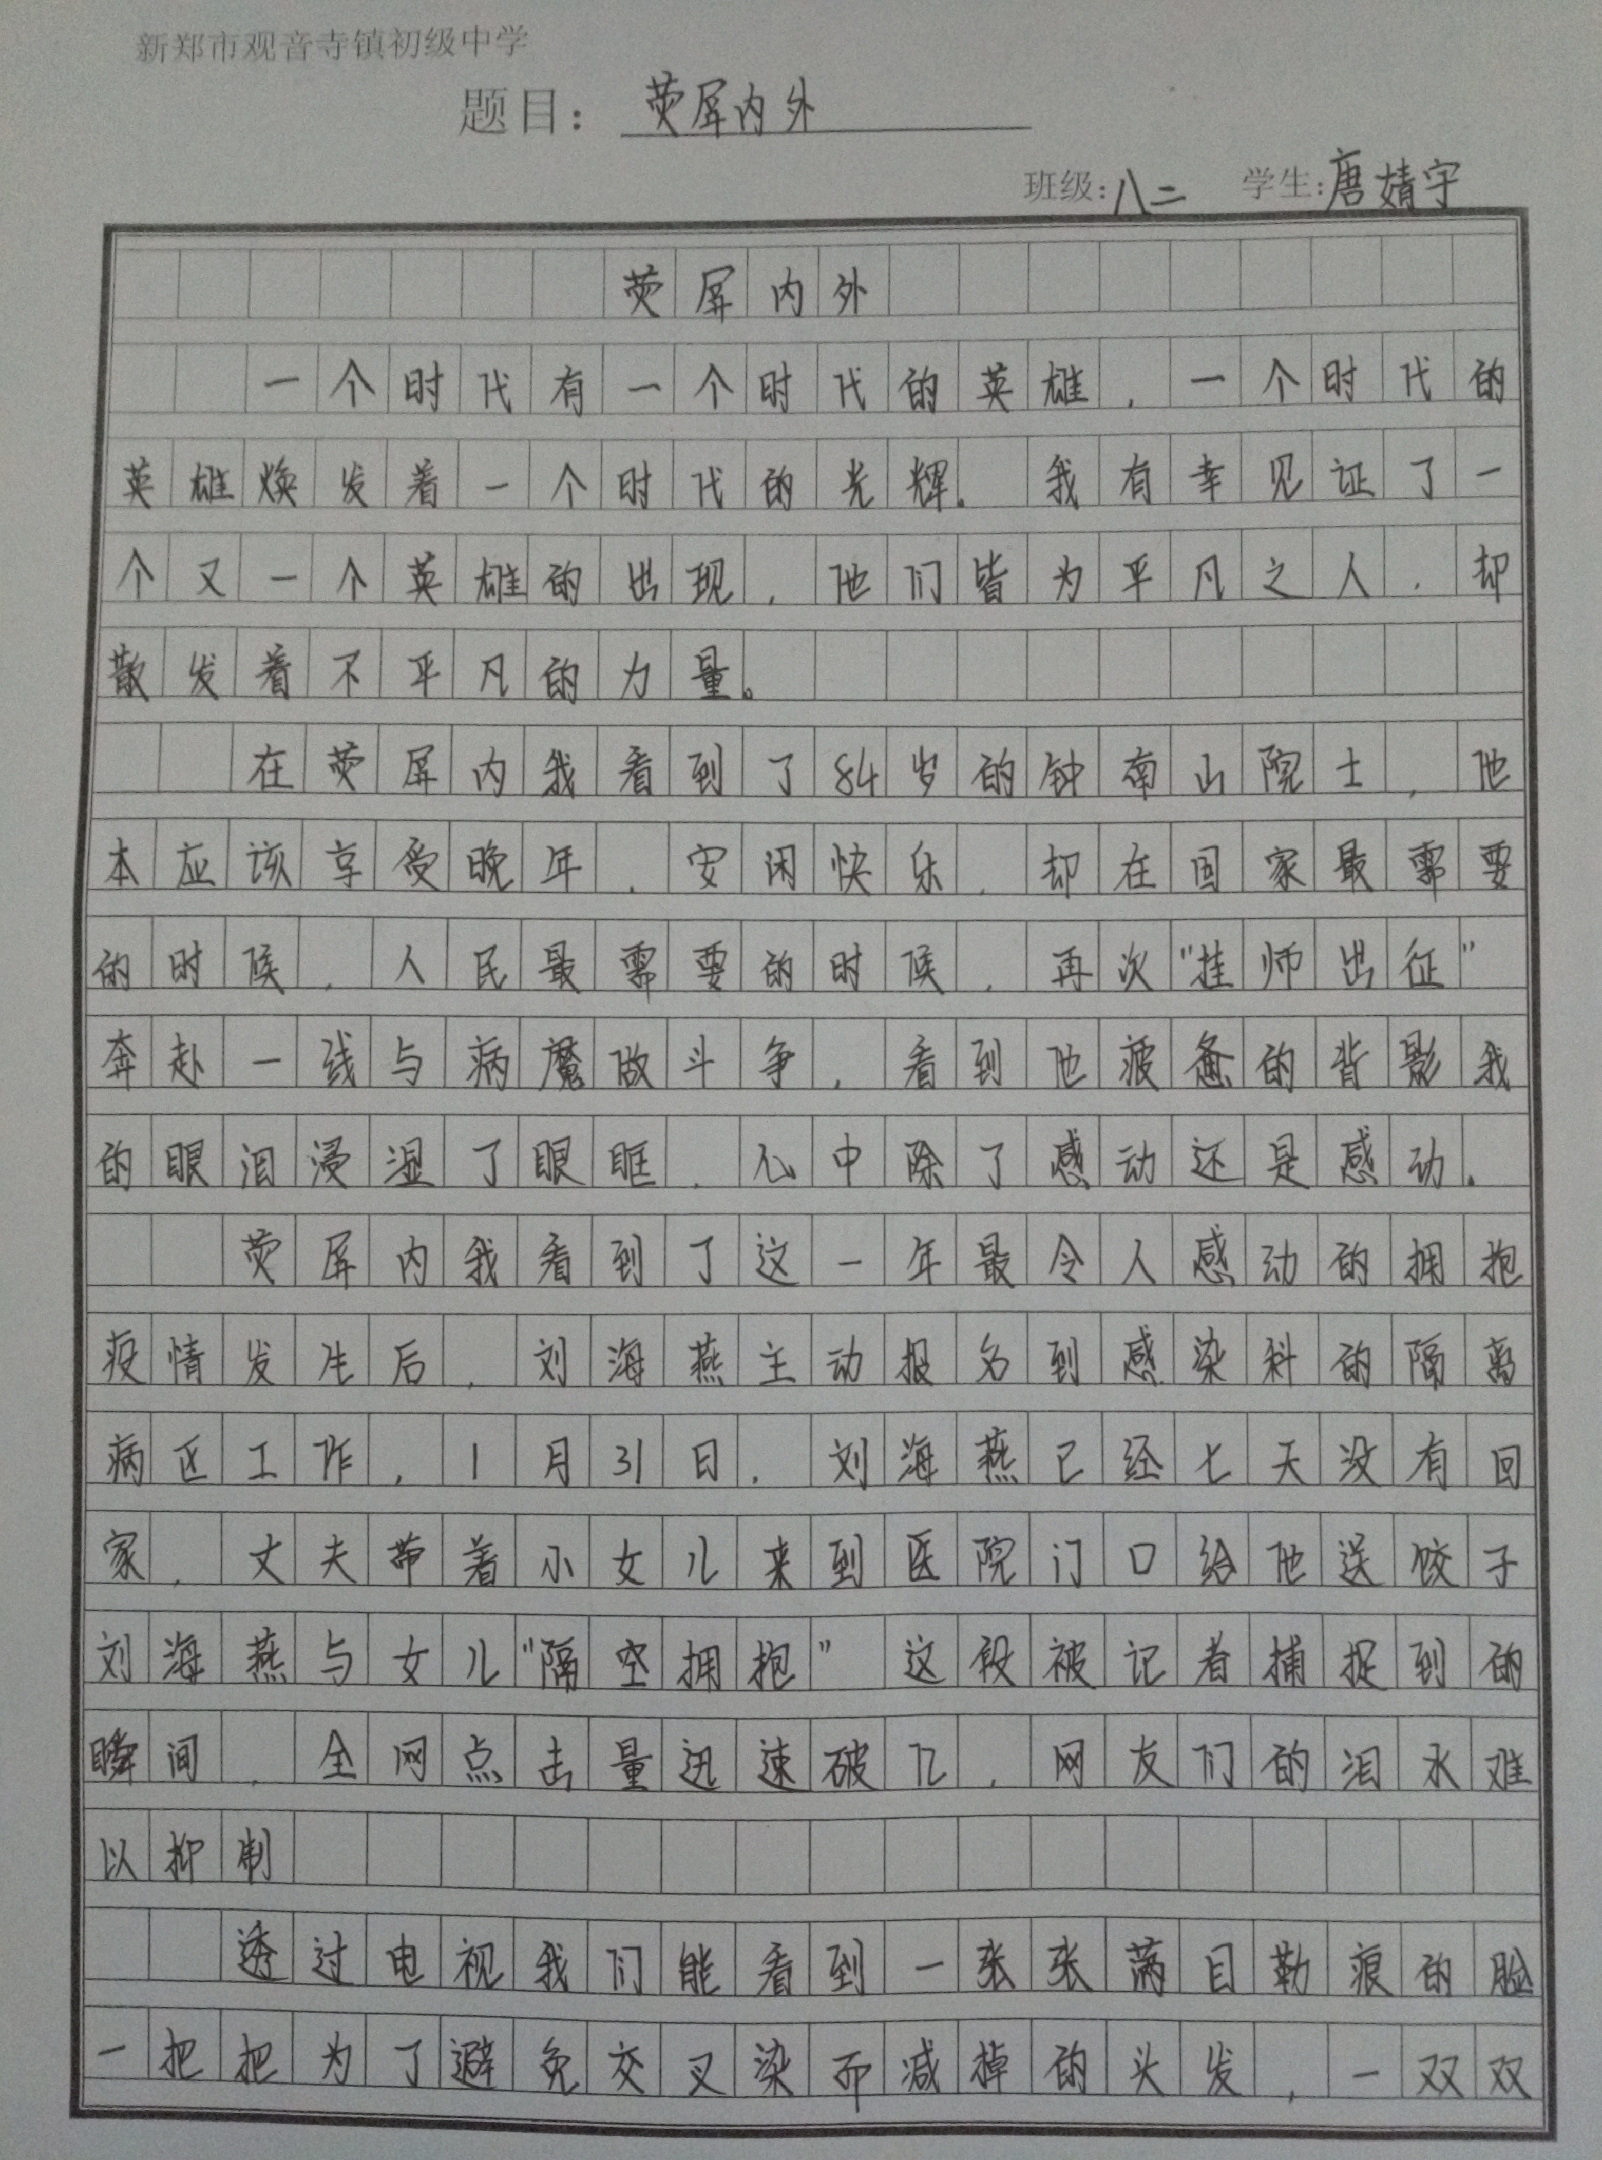 新郑市观音寺镇初级中学
题目：荧屏内外
班级：八二 学生：唐婧宇
荧屏内外
一个时代有一个时代的英雄，一个时代的
英雄焕发着一个时代的光辉。我有幸见证了一
个又一个英雄的出现，他们皆为平凡之人，却
散发着不平凡的力量。
在荧屏内我看到了84岁的钟南山院士，他
本应该享受晚年，安闲快乐，却在国家最需要
的时候，人民最需要的时候，再次"挂师出征"
奔赴一线与病魔做斗争，看到他疲惫的背影我
的眼泪浸湿了眼眶，心中除了感动还是感动。
荧屏内我看到了这一年最令人感动的拥抱
疫情发生后，刘海燕主动报名到感染科的隔离
病区工作，1月31日，刘海燕已经七天没有回
家，丈夫带着小女儿来到医院门口给他送饺子
刘海燕与女儿"隔空拥抱"这段被记者捕捉到的
瞬间，全网点击量迅速破亿，网友们的泪水难
以抑制
透过电视我们能看到一张张满目勒痕的脸
一把把为了避免交叉染而减掉的头发，一双双